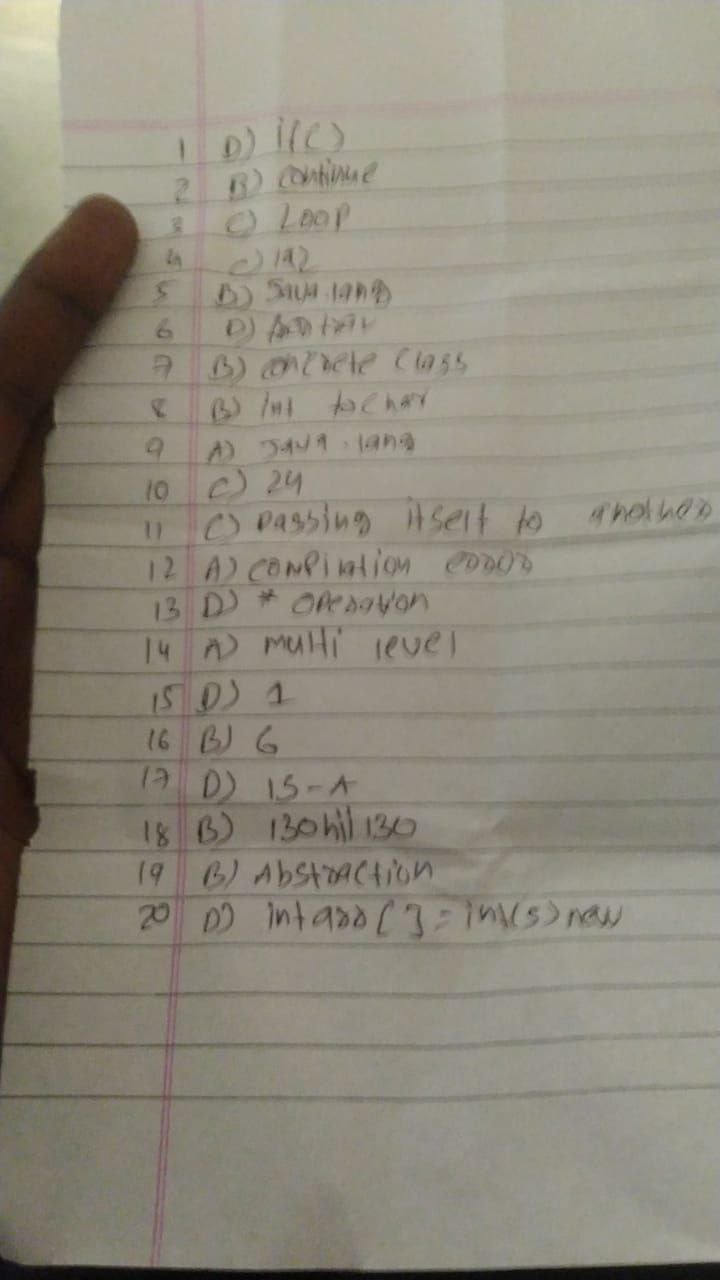 1 D) i(c)
2 B) continue
3 C) Loop
4 C) 192
5 B) Java.lang
6 D)
7 B) concrete class
8 B) int to char
9 A) Java.lang
10 C) 24
11 C) passing itself to another
12 A) compilation error
13 D) * operation
14 A) multi level
15 D) 1
16 B) 6
17 D) 15-A
18 B) 130 130
19 B) Abstraction
20 D) int arr [ ] = int(5) new